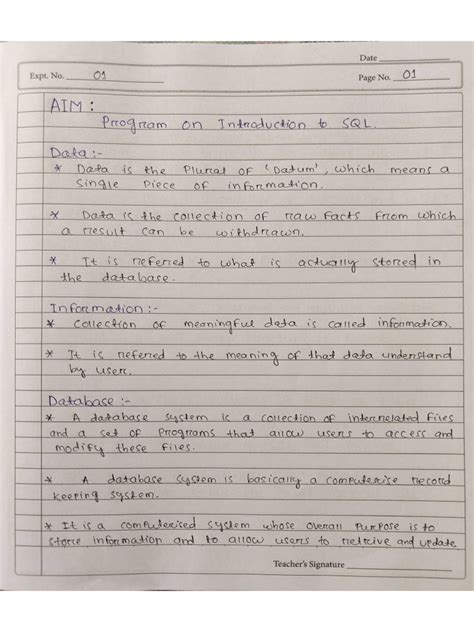 Date
Expt. No. 01
Page No. 01
AIM :
Program on Introduction to SQL.
Data :-
* Data is the Plural of 'Datum', which means a
single Piece of information.
* Data is the collection of raw facts from which
a result can be withdrawn.
* It is referred to what is actually stored in
the database.
Information :-
* Collection of meaningful data is called information.
* It is referred to the meaning of that data understand
by user.
Database :-
* A database system is a collection of interrelated files
and a set of Programs that allow users to access and
modify these files.
* A database system is basically a computerise record
keeping system.
* It is a computerised system whose overall Purpose is to
store information and to allow users to retrive and update
Teacher's Signature